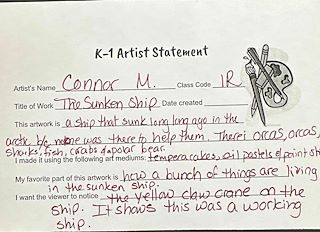 K-1 Artist Statement
Artist's Name Connor M. Class Code 1R
Title of Work The Sunken Ship Date created
This artwork is a ship that sunk long long ago in the
arctic b/c none was there to help them. There orcas, orcas,
sharks, fish, crabs & polar bear.
I made it using the following art mediums: tempera cakes, oil pastels & paint sti
My favorite part of this artwork is how a bunch of things are living
in the sunken ship.
I want the viewer to notice the yellow claw crane on the
ship. It shows this was a working
ship.